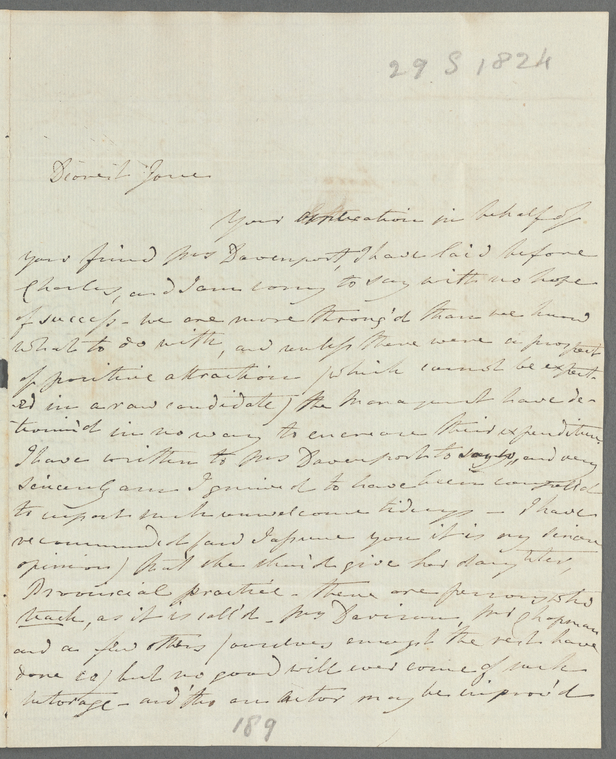 29 S 1824
Dearest Jane
Your application in behalf of
your friend Mrs Davenport, I have laid before
Charles, and I am sorry to say with no hope
of success - we are more throng'd than we know
what to do with, and unless there were a prospect
of positive attraction (which cannot be expect-
-ed in a raw candidate) the Management have de-
termin'd in no way to encrease their expenditure
I have written to Mrs Davenport to say so, and very
sincerely am I griev'd to have been compell'd
to impart such unwelcome tidings - I have
recommended (and I assure you it is my sincere
opinion) that she should give her daughter,
Provincial practice - there are persons who
teach, as it is call'd - Mrs Davison, Mr Chapman
and a few others (ourselves amongst the rest have
done so) but no good will ever come of such
tutorage - and tho an Actor may be improv'd
189